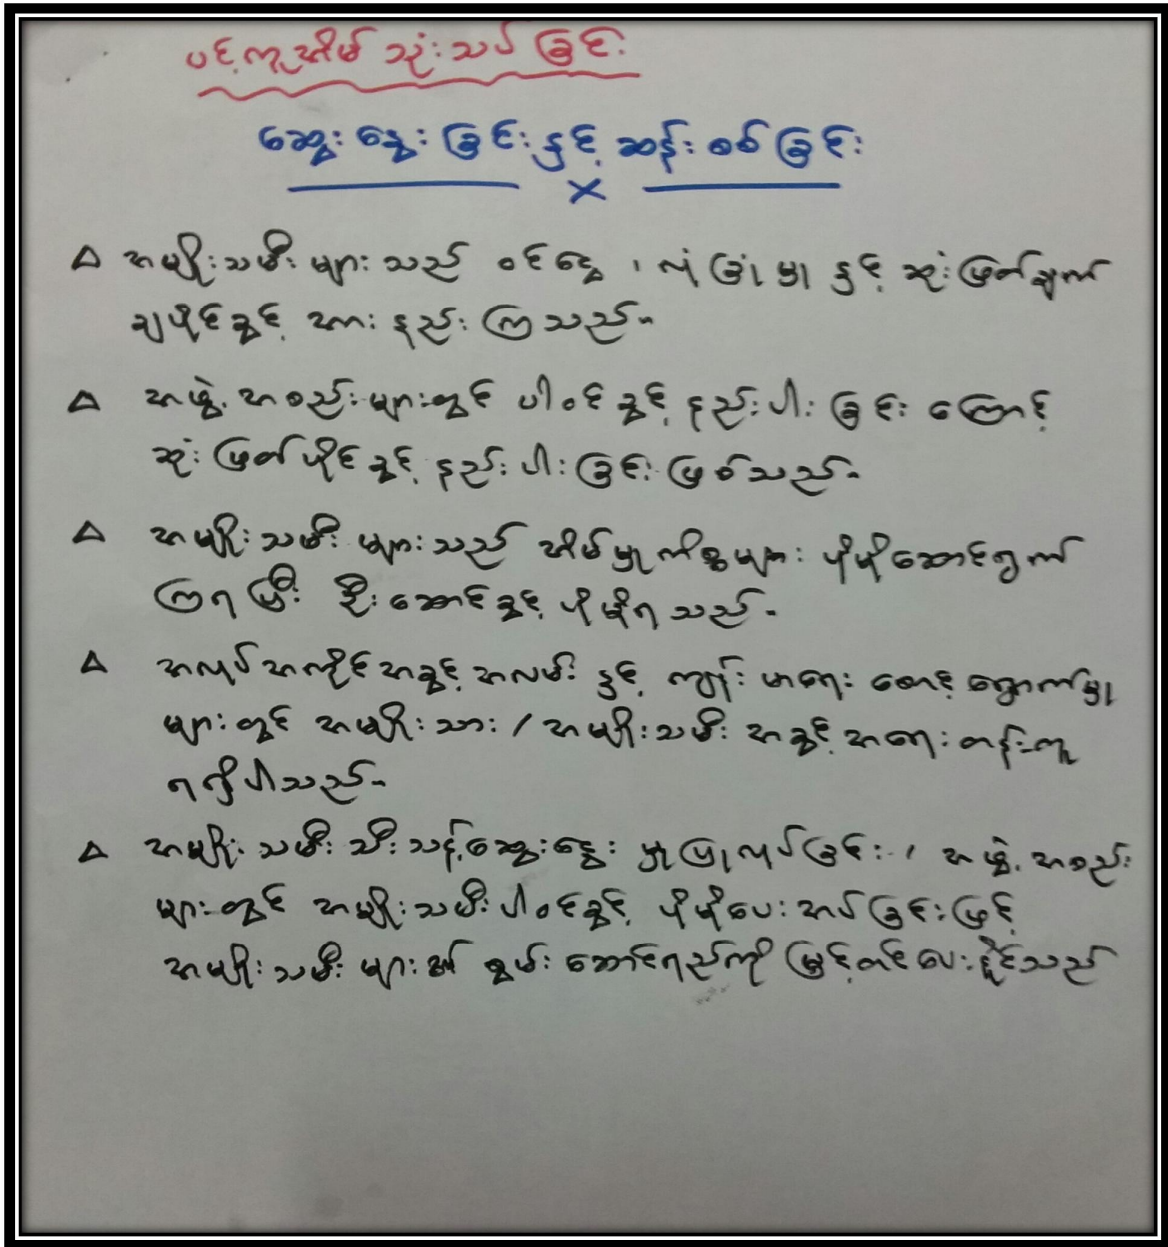 ပင့်ကူအိမ် သုံးသပ်ခြင်း
ဆွေးနွေးခြင်းနှင့် ဆန်းစစ်ခြင်း
Δ အမျိုးသမီးများသည် ဝင်ငွေ၊ လုံခြုံမှု နှင့် ဆုံးဖြတ်ချက်
ချပိုင်ခွင့် အားနည်းကြသည်။
Δ အဖွဲ့အစည်းများတွင် ပါဝင်ခွင့် နည်းပါးခြင်းကြောင့်
ဆုံးဖြတ်ပိုင်ခွင့် နည်းပါးခြင်းဖြစ်သည်။
Δ အမျိုးသမီးများသည် အိမ်မှုကိစ္စများ ပိုမိုဆောင်ရွက်
ကြရပြီး ဦးဆောင်ခွင့် ပိုမိုရသည်။
Δ အလုပ်အကိုင်အခွင့်အလမ်း နှင့် ကျန်းမာရေးစောင့်ရှောက်မှု
များတွင် အမျိုးသား / အမျိုးသမီး အခွင့်အရေးတန်းတူ
ရရှိပါသည်။
Δ အမျိုးသမီးသီးသန့်ဆွေးနွေးမှုပြုလုပ်ခြင်း၊ အဖွဲ့အစည်း
များတွင် အမျိုးသမီးပါဝင်ခွင့် ပိုမိုပေးအပ်ခြင်းဖြင့်
အမျိုးသမီးများ၏ စွမ်းဆောင်ရည်ကို မြှင့်တင်ပေးနိုင်သည်